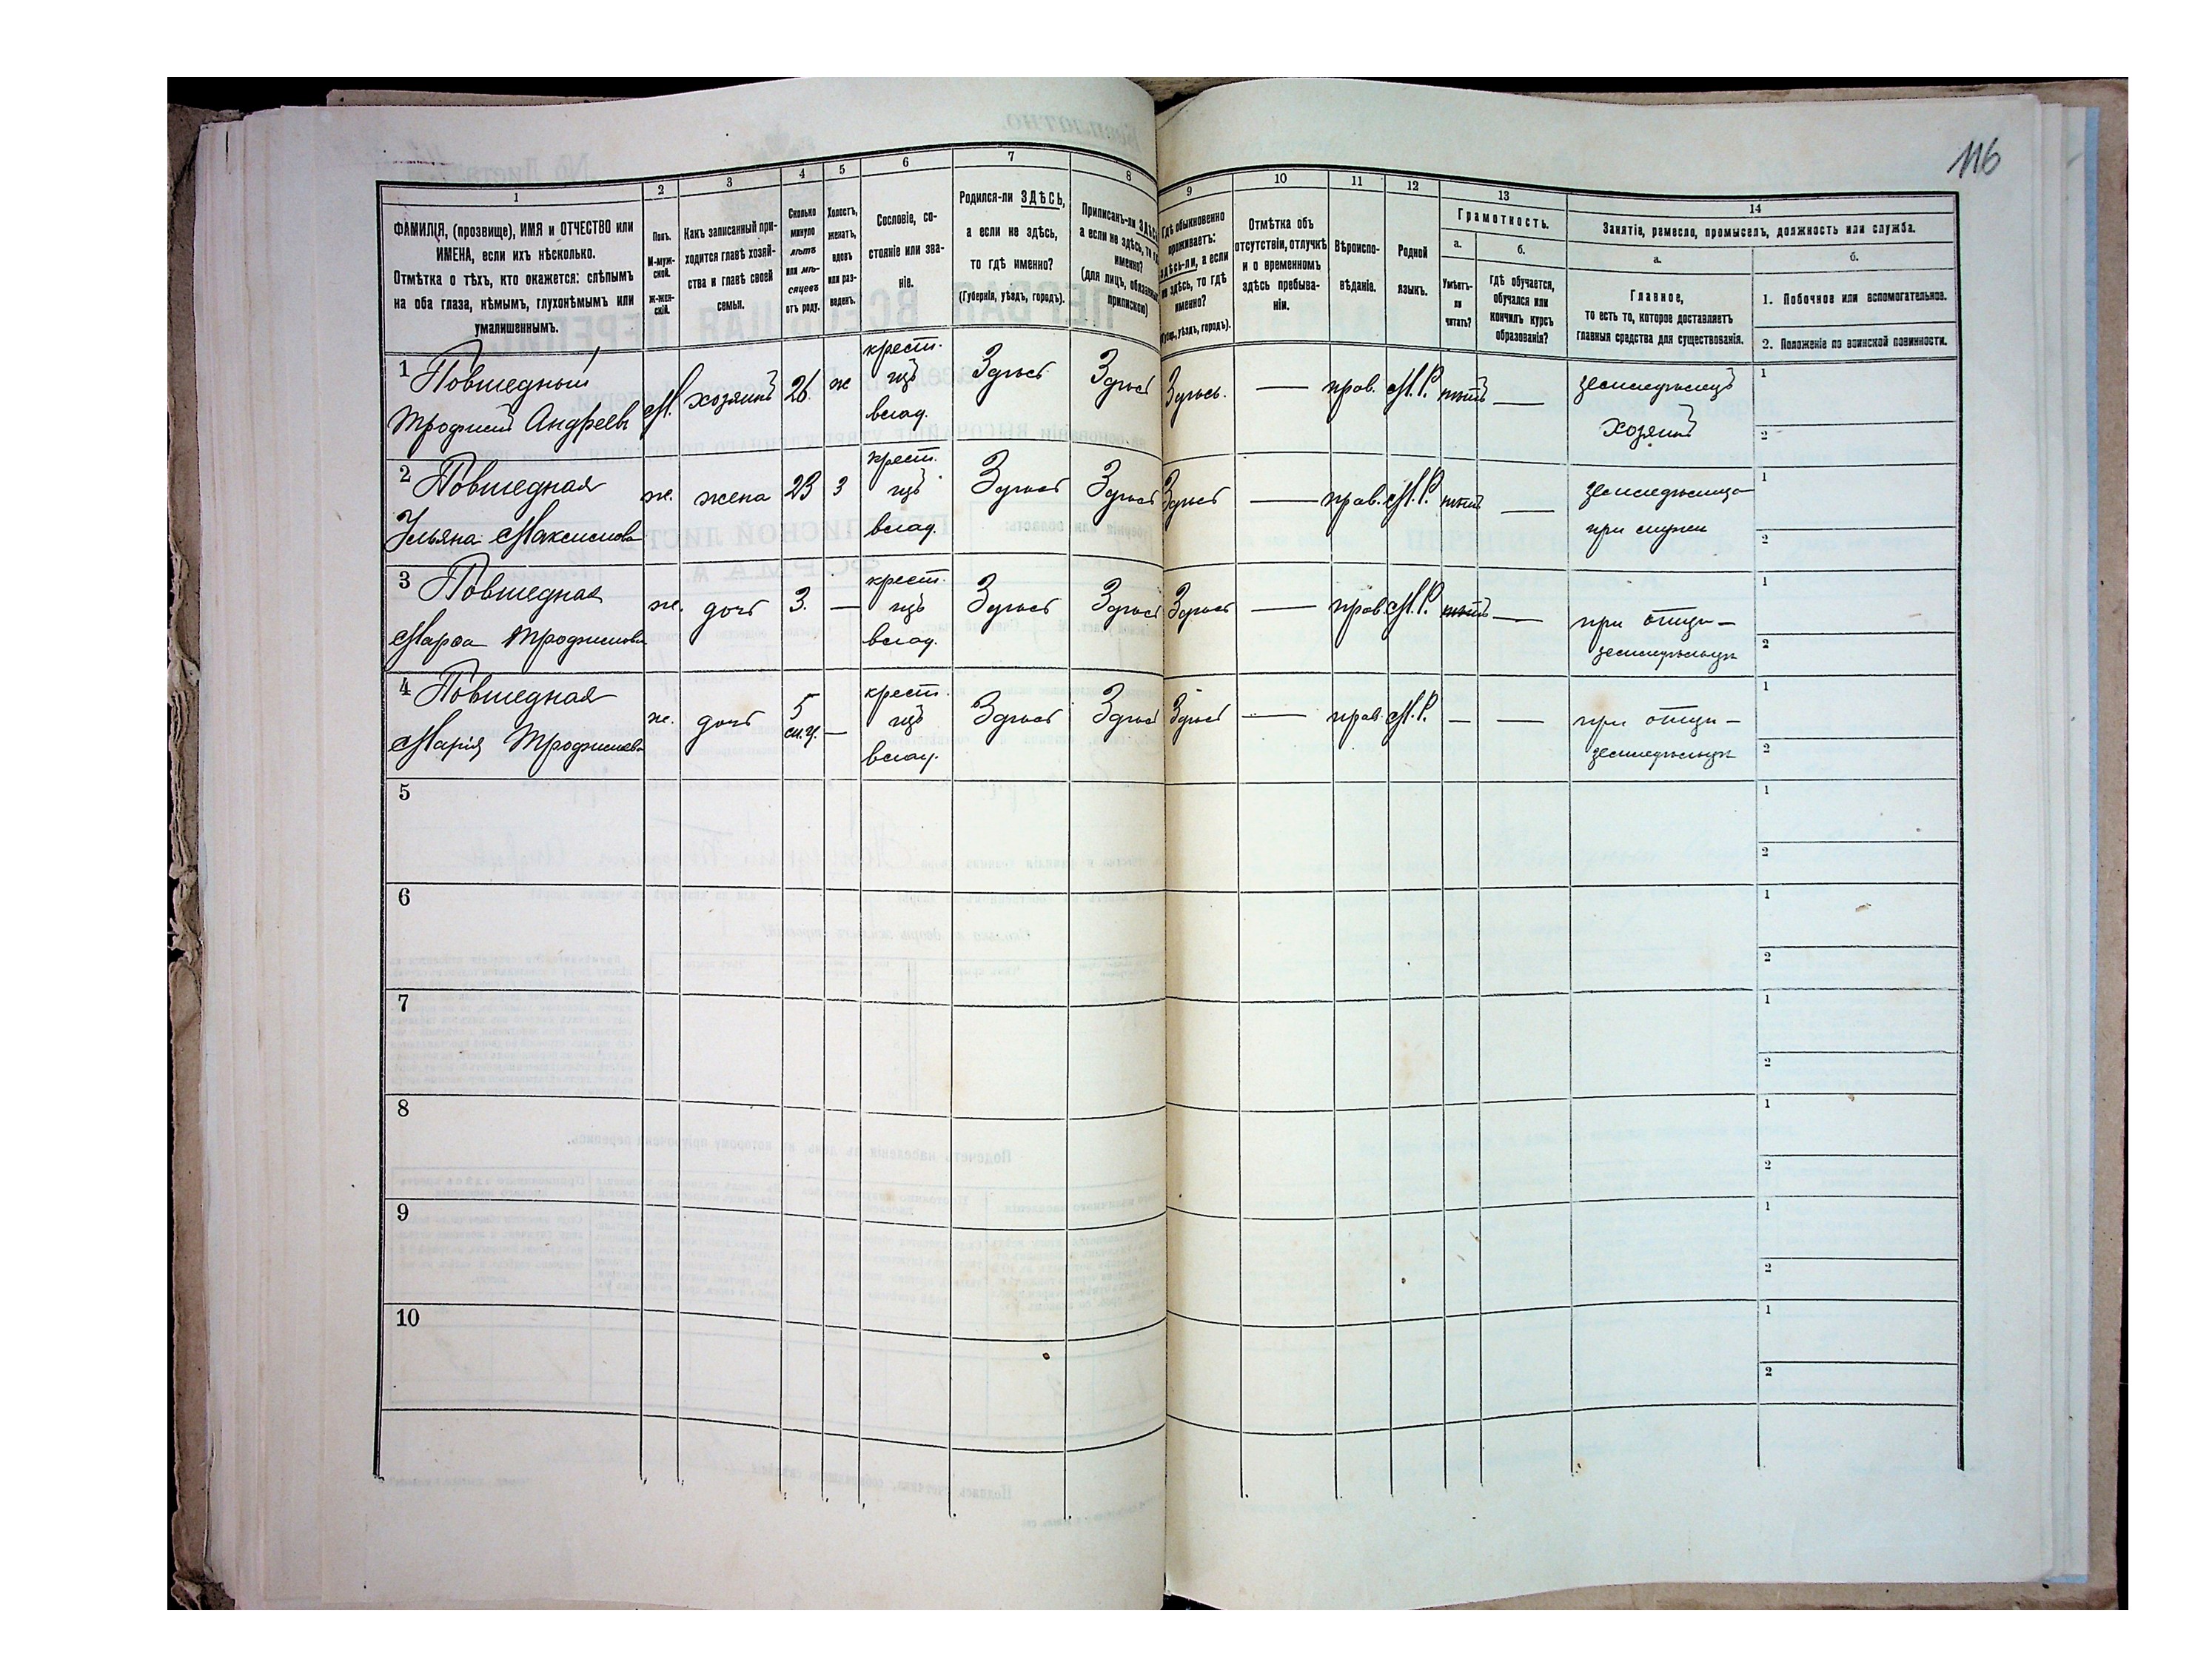 116
1
2
3
4
5
6
7
8
9
10
11
12
13
14
ФАМИЛІЯ, (прозвище), ИМЯ и ОТЧЕСТВО или
ИМЕНА, если ихъ нѣсколько.
Отмѣтка о тѣхъ, кто окажется: слѣпымъ
на оба глаза, нѣмымъ, глухонѣмымъ или
умалишеннымъ.
Полъ.
М-муж-
ской.
ж-жен-
скій.
Какъ записанный при-
ходится главѣ хозяй-
ства и главѣ своей
семьи.
Сколько
минуло
лѣтъ
или мѣ-
сяцевъ
отъ роду.
Холостъ,
женатъ,
вдовъ
или раз-
веденъ.
Сословіе, со-
стояніе или зва-
ніе.
Родился-ли ЗДѢСЬ,
а если не здѣсь,
то гдѣ именно?
(Губернія, уѣздъ, городъ).
Приписанъ-ли ЗДѢСЬ
а если не здѣсь, то гдѣ
именно?
(для лицъ, обязанныхъ
припискою)
Гдѣ обыкновенно
проживаетъ:
здѣсь-ли, а если
не здѣсь, то гдѣ
именно?
уѣздъ, городъ).
Отмѣтка объ
отсутствіи, отлучкѣ
и о временномъ
здѣсь пребыва-
ніи.
Вѣроиспо-
вѣданіе.
Родной
языкъ.
Грамотность.
а.
Умѣетъ-
ли
читать?
б.
гдѣ обучается,
обучался или
кончилъ курсъ
образованія?
Занятіе, ремесло, промыселъ, должность или служба.
а.
Главное,
то есть то, которое доставляетъ
главныя средства для существованія.
б.
1. Побочное или вспомогательное.
2. Положеніе по воинской повинности.
1 Повшедный
Трофимъ Андреевъ
М.
хозяинъ
26
ж
крест.
изъ
влад.
Здѣсь
Здѣсь
Здѣсь.
—
прав.
М.Р.
нѣтъ
—
земледѣлецъ
хозяинъ
1
2
2 Повшедная
Ульяна Максимова
ж.
жена
23
З
крест.
изъ
влад.
Здѣсь
Здѣсь
Здѣсь
—
прав.
М.Р.
нѣтъ
—
при мужи
1
2
3 Повшедная
Марѳа Трофимова
ж.
дочь
3.
—
крест.
изъ
влад.
Здѣсь
Здѣсь
Здѣсь
—
прав.
М.Р.
нѣтъ
—
при отцѣ —
земледѣльцѣ
1
2
4 Повшедная
Марія Трофимова
ж.
дочь
5
—
крест.
изъ
влад.
Здѣсь
Здѣсь
Здѣсь
—
прав.
М.Р.
—
—
при отцѣ —
земледѣльцѣ
1
2
5
1
2
6
1
2
7
1
2
8
1
2
9
1
2
10
1
2